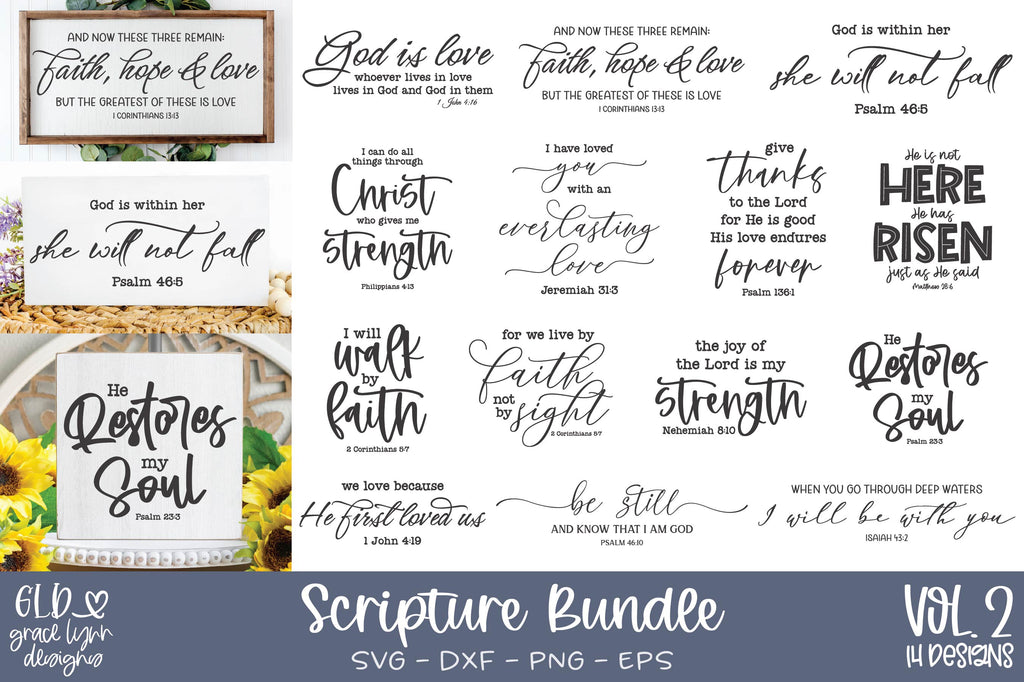 AND NOW THESE THREE REMAIN:
faith, hope & love
BUT THE GREATEST OF THESE IS LOVE
1 CORINTHIANS 13:13
God is within her
she will not fall
Psalm 46:5
He
Restores
my
Soul
Psalm 23:3
God is love
whoever lives in love
lives in God and God in them
1 John 4:16
AND NOW THESE THREE REMAIN:
faith, hope & love
BUT THE GREATEST OF THESE IS LOVE
1 CORINTHIANS 13:13
God is within her
she will not fall
Psalm 46:5
I can do all
things through
Christ
who gives me
strength
Philippians 4:13
I have loved
you
with an
everlasting
love
Jeremiah 31:3
give
thanks
to the Lord
for He is good
His love endures
forever
Psalm 136:1
He is not
HERE
He has
RISEN
just as He said
Matthew 28:6
I will
walk
by
faith
2 Corinthians 5:7
for we live by
faith
not
by sight
2 Corinthians 5:7
the joy of
the Lord is my
strength
Nehemiah 8:10
He
Restores
my
Soul
Psalm 23:3
we love because
He first loved us
1 John 4:19
be still
AND KNOW THAT I AM GOD
PSALM 46:10
WHEN YOU GO THROUGH DEEP WATERS
I will be with you
ISAIAH 43:2
GLD
grace lynn
designs
Scripture Bundle
SVG - DXF - PNG - EPS
VOL. 2
14 DESIGNS